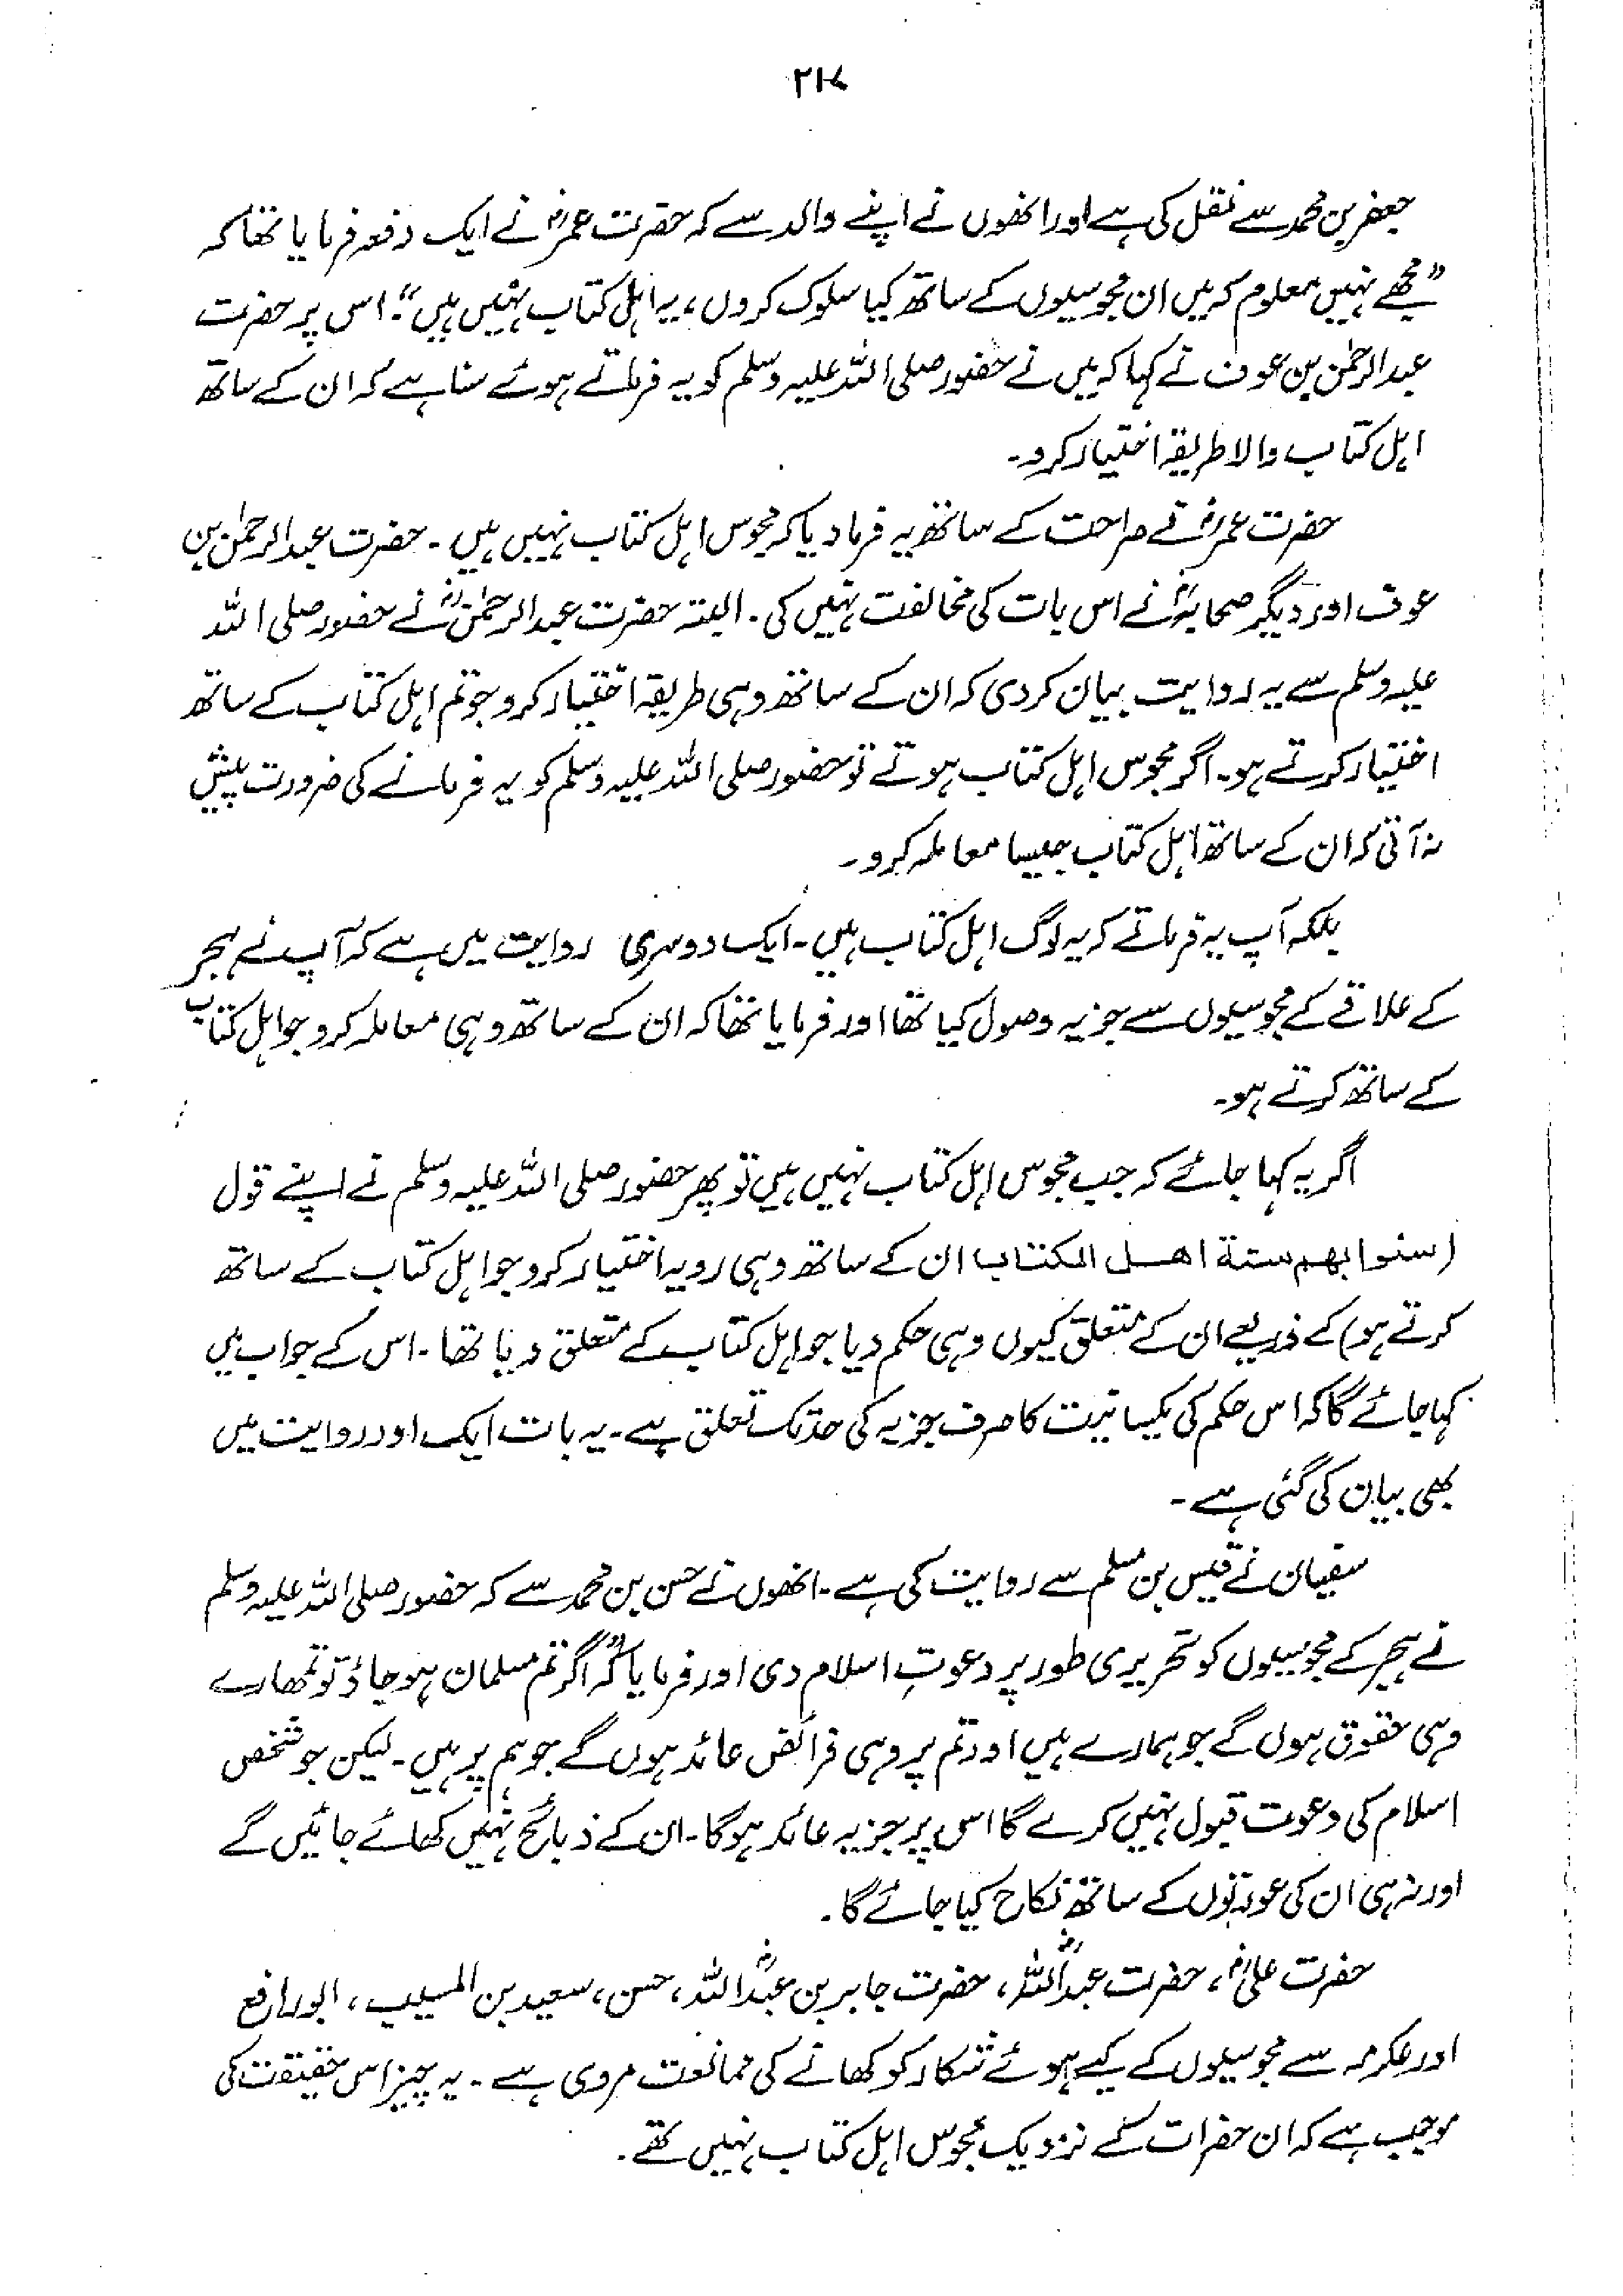 ۲۱۷
جعفر بن محمد سے نقل کی ہے اور انھوں نے اپنے والد سے کہ حضرت عمرؓ نے ایک دفعہ فرمایا تھا کہ
”مجھے نہیں معلوم کہ میں ان مجوسیوں کے ساتھ کیا سلوک کروں، یہ اہل کتاب نہیں ہیں“۔ اس پر حضرت
عبدالرحمٰن بن عوف نے کہا کہ میں نے حضور صلی اللہ علیہ وسلم کو یہ فرماتے ہوئے سنا ہے کہ ان کے ساتھ
اہل کتاب والا طریقہ اختیار کرو۔
حضرت عمرؓ نے صراحت کے ساتھ یہ فرما دیا کہ مجوس اہل کتاب نہیں ہیں۔ حضرت عبدالرحمٰن بن
عوف اور دیگر صحابہؓ نے اس بات کی مخالفت نہیں کی۔ البتہ حضرت عبدالرحمٰنؓ نے حضور صلی اللہ
علیہ وسلم سے یہ روایت بیان کر دی کہ ان کے ساتھ وہی طریقہ اختیار کرو جو تم اہل کتاب کے ساتھ
اختیار کرتے ہو۔ اگر مجوس اہل کتاب ہوتے تو حضور صلی اللہ علیہ وسلم کو یہ فرمانے کی ضرورت پیش
نہ آتی کہ ان کے ساتھ اہل کتاب جیسا معاملہ کرو۔
بلکہ آپ یہ فرماتے کہ یہ لوگ اہل کتاب ہیں۔ ایک دوسری روایت میں ہے کہ آپ نے ہجر
کے علاقے کے مجوسیوں سے جزیہ وصول کیا تھا اور فرمایا تھا کہ ان کے ساتھ وہی معاملہ کرو جو اہل کتاب
کے ساتھ کرتے ہو۔
اگر یہ کہا جائے کہ جب مجوس اہل کتاب نہیں ہیں تو پھر حضور صلی اللہ علیہ وسلم نے اپنے قول
(سنوا بهم سنة اهل الكتاب ان کے ساتھ وہی رویہ اختیار کرو جو اہل کتاب کے ساتھ
کرتے ہو) کے ذریعے ان کے متعلق کیوں وہی حکم دیا جو اہل کتاب کے متعلق دیا تھا۔ اس کے جواب میں
کہا جائے گا کہ اس حکم کی یکسانیت کا صرف جزیہ کی حد تک تعلق ہے۔ یہ بات ایک اور روایت میں
بھی بیان کی گئی ہے۔
سفیان نے قیس بن مسلم سے روایت کی ہے۔ انھوں نے حسن بن محمد سے کہ حضور صلی اللہ علیہ وسلم
نے ہجر کے مجوسیوں کو تحریری طور پر دعوتِ اسلام دی اور فرمایا کہ ”اگر تم مسلمان ہو جاؤ تو تمھارے
وہی حقوق ہوں گے جو ہمارے ہیں اور تم پر وہی فرائض عائد ہوں گے جو ہم پر ہیں۔ لیکن جو شخص
اسلام کی دعوت قبول نہیں کرے گا اس پر جزیہ عائد ہوگا۔ ان کے ذبائح نہیں کھائے جائیں گے
اور نہ ہی ان کی عورتوں کے ساتھ نکاح کیا جائے گا۔
حضرت علیؓ، حضرت عبداللہؓ، حضرت جابر بن عبداللہؓ، حسن، سعید بن المسیب، ابورافع
اور عکرمہ سے مجوسیوں کے کیے ہوئے شکار کو کھانے کی ممانعت مروی ہے۔ یہ چیز اس حقیقت کی
موجب ہے کہ ان حضرات کے نزدیک مجوس اہل کتاب نہیں تھے۔